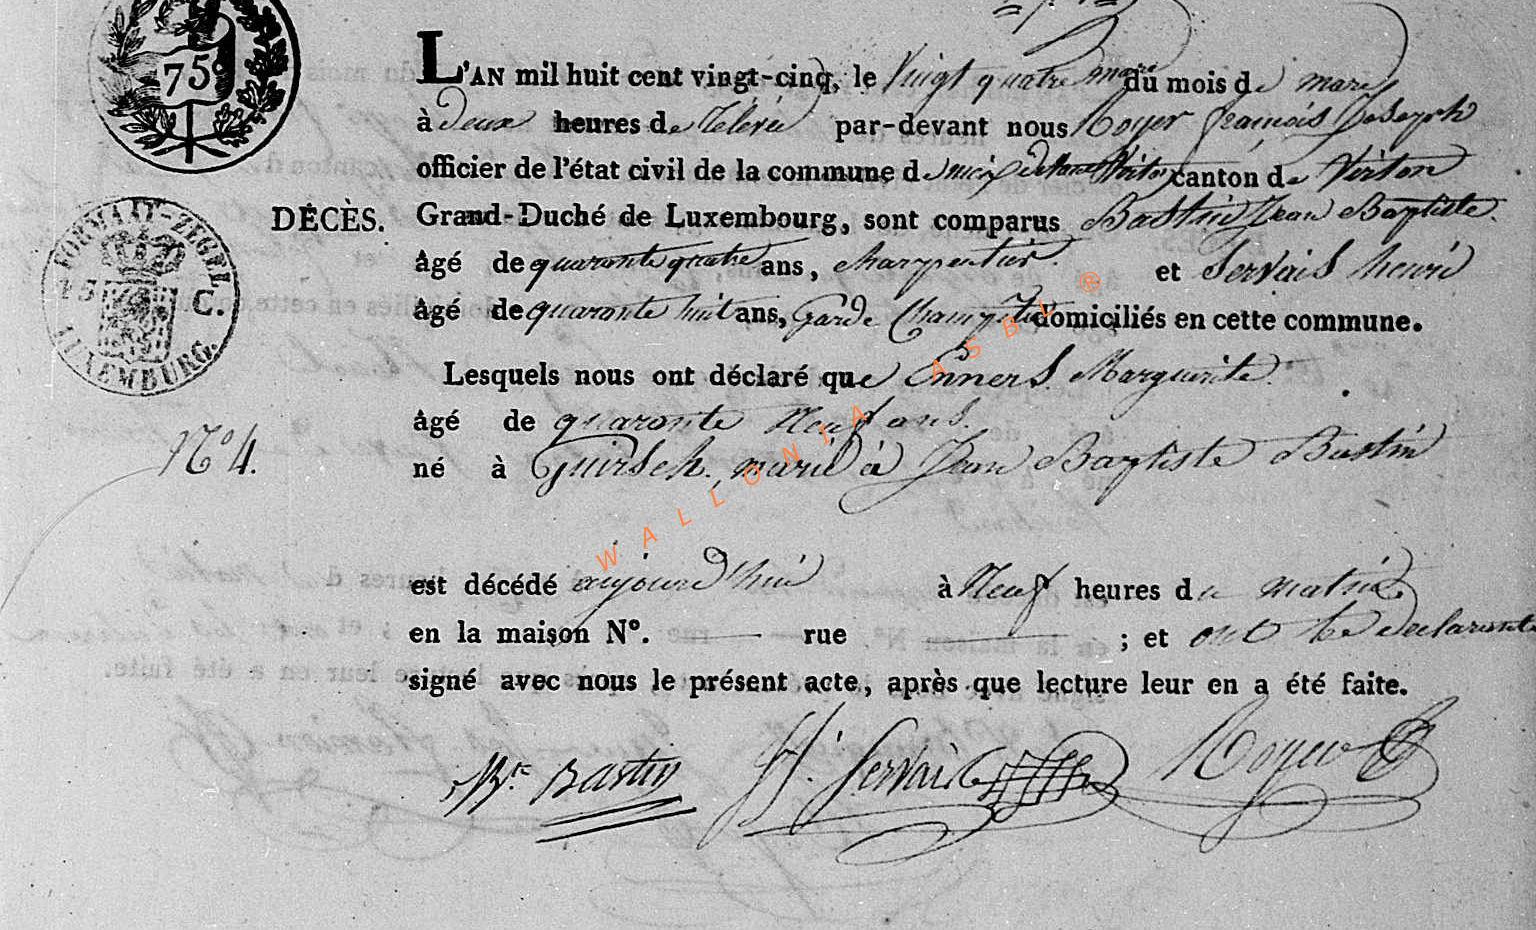 75
L'AN mil huit cent vingt-cinq, le Vingt quatre mars du mois de mars
à deux heures de relevée par-devant nous Royer françois Joseph
officier de l'état civil de la commune de meix devant Virton canton de Virton
DÉCÈS. Grand-Duché de Luxembourg, sont comparus Bastin Jean Baptiste.
âgé de quarante quatre ans, charpentier. et Servais henri
âgé de quarante huit ans, Garde Champetre domiciliés en cette commune.
FORMAAT-ZEGEL
75 C.
LUXEMBURG.
Lesquels nous ont déclaré que Enners Marguerite.
âgé de quarante Neuf ans.
N° 4.
né à Guirsch, marié à Jean Baptiste Bastin
est décédé aujourd'hui à Neuf heures du matin,
en la maison N°. — rue — ; et ont les declarants
signé avec nous le présent acte, après que lecture leur en a été faite.
Bte Bastin H. Servais Royer
WALLONIA ASBL ®